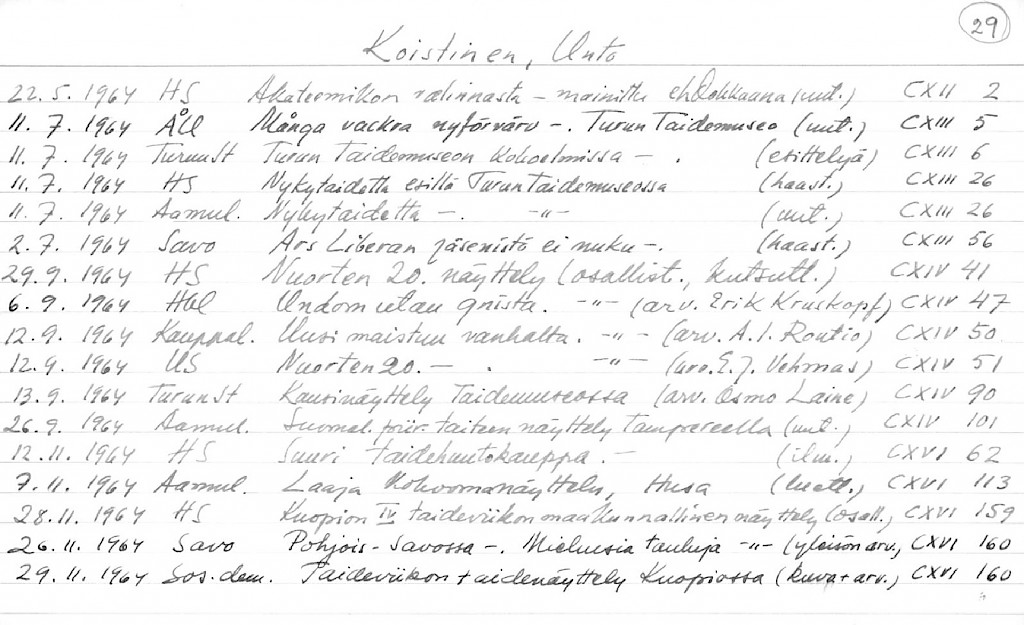 29
Koistinen, Unto
22. 5. 1964 HS Akateemikon valinnasta - mainittu ehdokkaana (uut.) CXII 2
11. 7. 1964 ÅU Många vackra nyförvärv -. Turun Taidemuseo (uut.) CXIII 5
11. 7. 1964 TurunSt Turun Taidemuseon kokoelmissa - . (esittelyä) CXIII 6
11. 7. 1964 HS Nykytaidetta esillä Turun Taidemuseossa (haast.) CXIII 26
11. 7. 1964 Aamul. Nykytaidetta -. -"- (uut.) CXIII 26
2. 7. 1964 Savo Ars Liberan jäsenistö ei nuku -. (haast.) CXIII 56
29. 9. 1964 HS Nuorten 20. näyttely (osallist., kutsutt.) CXIV 41
6. 9. 1964 Hbl Ungdom utan gnista. -"- (arv. Erik Kruskopf) CXIV 47
12. 9. 1964 Kauppal. Uusi maistuu vanhalta. -"- (arv. A.I. Routio) CXIV 50
12. 9. 1964 US Nuorten 20. - . -"- (arv. E.J. Vehmas) CXIV 51
13. 9. 1964 TurunSt Kausinäyttely Taidemuseossa (arv. Osmo Laine) CXIV 90
26. 9. 1964 Aamul. Suomal. piir. taiteen näyttely Tampereella (uut.) CXIV 101
12. 11. 1964 HS Suuri taidehuutokauppa. - (ilm.) CXVI 62
7. 11. 1964 Aamul. Laaja kokoomanäyttely, Husa (luett.) CXVI 113
28. 11. 1964 HS Kuopion IV taideviikon maakunnallinen näyttely (osall., CXVI 159
26. 11. 1964 Savo Pohjois-Savossa -. Mieluisia tauluja -"- (yleisön arv., CXVI 160
29. 11. 1964 Sos.dem. Taideviikon taidenäyttely Kuopiossa (kuva + arv.) CXVI 160